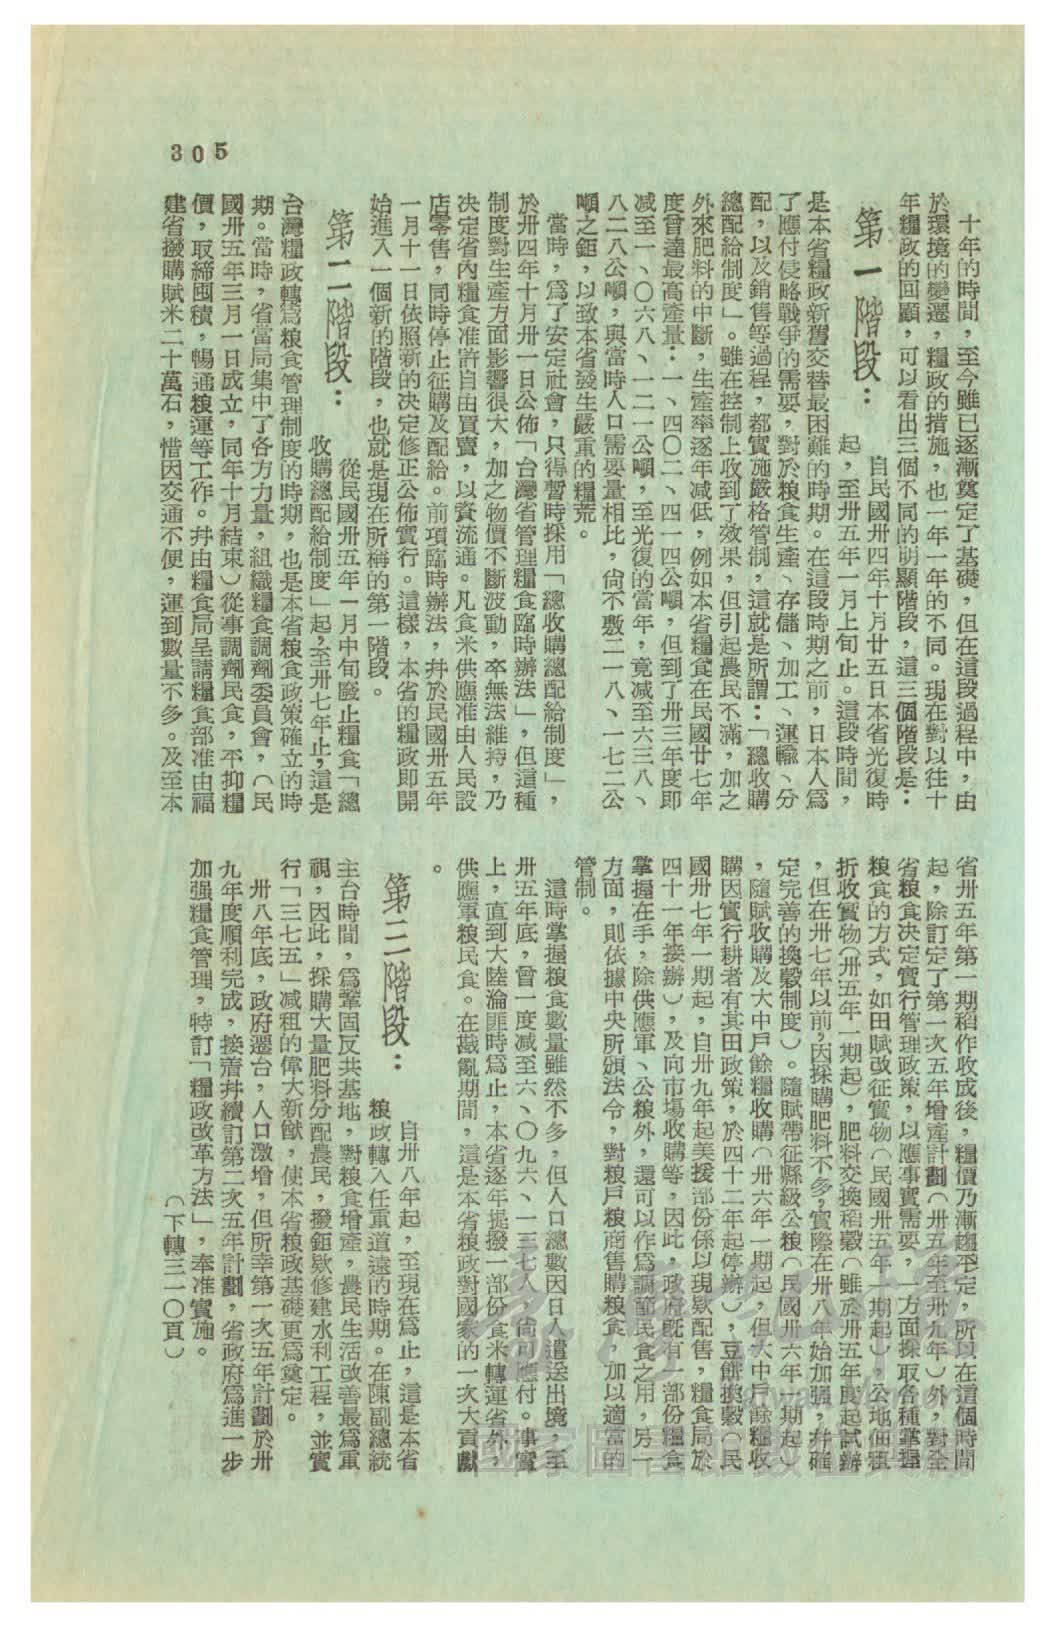 305
十年的時間，至今雖已逐漸奠定了基礎，但在這段過程中，由
於環境的變遷，糧政的措施，也一年一年的不同。現在對以往十
年糧政的回顧，可以看出三個不同的明顯階段，這三個階段是：
第一階段：
自民國卅四年十月廿五日本省光復時
起，至卅五年一月上旬止。這段時間，
是本省糧政新舊交替最困難的時期。在這段時期之前，日本人爲
了應付侵略戰爭的需要，對於粮食生產、存儲、加工、運輸、分
配，以及銷售等過程，都實施嚴格管制，這就是所謂：「總收購
總配給制度」。雖在控制上收到了效果，但引起農民不滿，加之
外來肥料的中斷，生產率逐年减低，例如本省糧食在民國廿七年
度曾達最高產量：一、四〇二、四一四公噸，但到了卅三年度即
减至一、〇六八、一二一公噸，至光復的當年，竟减至六三八、
八二八公噸，與當時人口需要量相比，尙不敷二一八、一七二公
噸之鉅，以致本省發生嚴重的糧荒。
當時，爲了安定社會，只得暫時採用「總收購總配給制度」，
於卅四年十月卅一日公佈「台灣省管理糧食臨時辦法」，但這種
制度對生產方面影響很大，加之物價不斷波動，卒無法維持，乃
决定省內糧食准許自由買賣，以資流通。凡食米供應准由人民設
店零售，同時停止征購及配給。前項臨時辦法，幷於民國卅五年
一月十一日依照新的决定修正公佈實行。這樣，本省的糧政即開
始進入一個新的階段，也就是現在所稱的第一階段。
第二階段：
從民國卅五年一月中旬廢止糧食「總
收購總配給制度」起，至卅七年止，這是
台灣糧政轉爲粮食管理制度的時期，也是本省粮食政策確立的時
期。當時，省當局集中了各方力量，組織糧食調劑委員會，（民
國卅五年三月一日成立，同年十月結束）從事調劑民食，平抑糧
價，取締囤積，暢通粮運等工作。幷由糧食局呈請糧食部准由福
建省撥購賦米二十萬石，惜因交通不便，運到數量不多。及至本
省卅五年第一期稻作收成後，糧價乃漸趨平定，所以在這個時間
起，除訂定了第一次五年增產計劃（卅五年至卅九年）外，對全
省粮食决定實行管理政策，以應事實需要，一方面採取各種掌握
粮食的方式，如田賦改征實物（民國卅五年一期起），公地佃租
折收實物（卅五年一期起），肥料交換稻穀（雖於卅五年度起試辦
，但在卅七年以前，因採購肥料不多，實際在卅八年始加强，幷確
定完善的換穀制度）。隨賦帶征縣級公粮（民國卅六年一期起）
，隨賦收購及大中戶餘糧收購（卅六年一期起，但大中戶餘糧收
購因實行耕者有其田政策，於四十二年起停辦），豆餅換穀（民
國卅七年一期起，自卅九年起美援部份係以現欵配售，糧食局於
四十一年接辦），及向市場收購等，因此，政府既有一部份糧食
掌握在手，除供應軍、公粮外，還可以作爲調節民食之用，另一
方面，則依據中央所頒法令，對粮戶粮商售購粮食，加以適當的
管制。
這時掌握粮食數量雖然不多，但人口總數因日人遣送出境，至
卅五年底，曾一度减至六、〇九六、一三七人，尙可應付。事實
上，直到大陸淪匪時爲止，本省逐年提撥一部份食米轉運省外，
供應軍粮民食。在戡亂期間，這是本省粮政對國家的一次大貢獻
。
第三階段：
自卅八年起，至現在爲止，這是本省
粮政轉入任重道遠的時期。在陳副總統
主台時間，爲鞏固反共基地，對粮食增產，農民生活改善最爲重
視，因此，採購大量肥料分配農民，撥鉅欵修建水利工程，並實
行「三七五」减租的偉大新猷，使本省粮政基礎更爲奠定。
卅八年底，政府遷台，人口激增，但所幸第一次五年計劃於卅
九年度順利完成，接着幷續訂第二次五年計劃，省政府爲進一步
加强糧食管理，特訂「糧政改革方法」，奉准實施。
（下轉三一〇頁）
國家圖書館